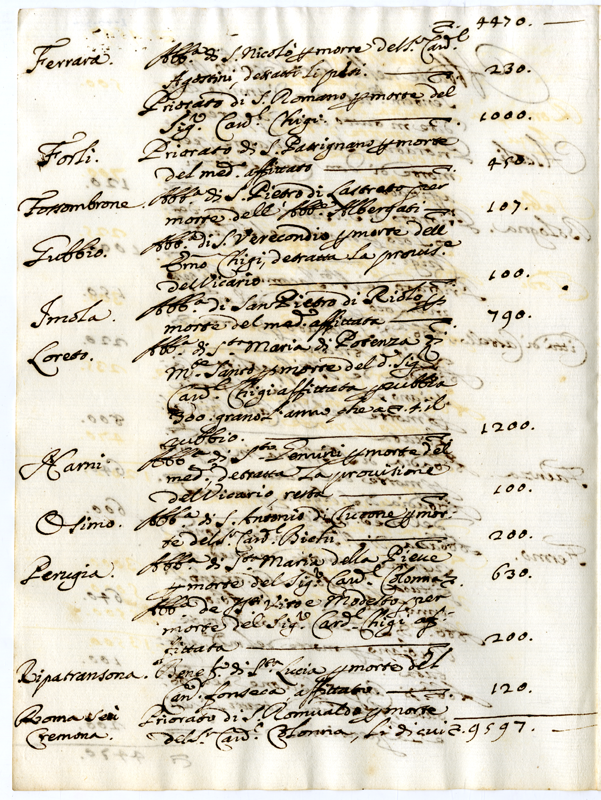 4470.
Ferrara. Abb.ª di S. Nicolò p morte del S. Card.l
Agostini, detratti li pesi. 230.
Priorato di S. Romano p morte del
Sig.r Card.l Chigi. 1000.
Forlì. Priorato di S. Passignano p morte
del med.º affittato 450.
Fossombrone. Abb.ª di S. Pietro di per
morte dell' Abb.e Albergati 107.
Gubbio. Abb.ª di S. Verecondio p morte dell'
Emo Chigi, detratta la prouis.e
del Vicario 100.
Imola. Abb.ª di San Pietro di Riolo p
morte del med.º affittata 790.
Loreto. Abb.ª di S.ta Maria di Potenza
M.te Santo p morte del d.º Sig.r
Card.l Chigi affittata
300. grano anno
Gubbio. 1200.
Narni. Abb.ª di p morte del
med.º detratta La prouisione
del Vicario resta 100.
Osimo. Abb.ª di S. Antonio di p mor-
te del S. Card. Bichi. 200.
Perugia. Abb.ª di S.ta Maria della Pieue
p morte del Sig.r Card. Colonna 630.
Abb.ª de SS.ti Vito e Modesto, per
morte del Sig.r Card.l Chigi af-
fittata 200.
Ripatransona. Benef.º di S.ta Lucia p morte del
Can.º Fonseca affittato 120.
Roma
Cremona. Priorato di S. Romualdo p morte
del S. Card. Colonna, 9597.